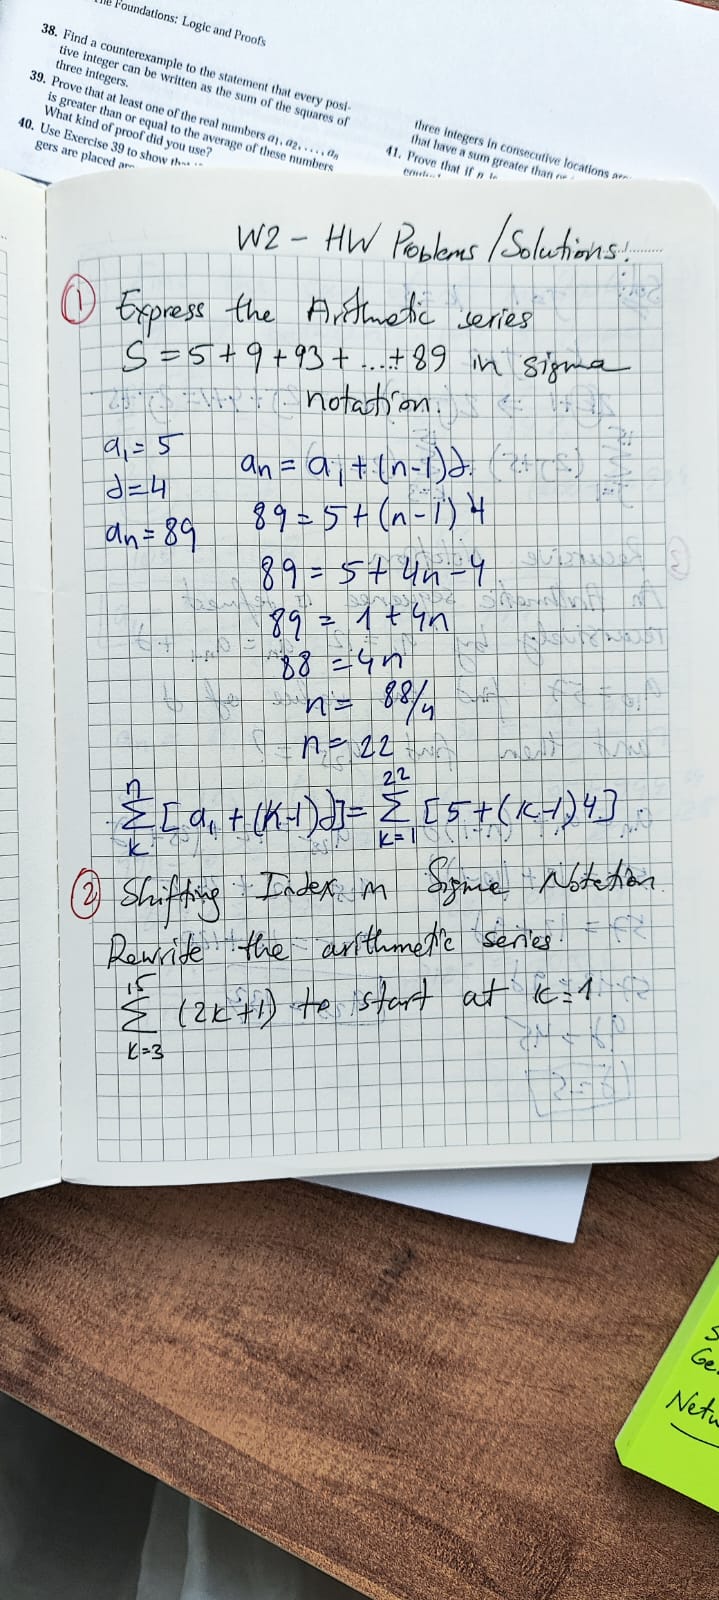 The Foundations: Logic and Proofs
38. Find a counterexample to the statement that every posi-
tive integer can be written as the sum of the squares of
three integers.
39. Prove that at least one of the real numbers a₁, a₂, . . . , aₙ
is greater than or equal to the average of these numbers
What kind of proof did you use?
40. Use Exercise 39 to show
gers are placed
three integers in consecutive locations
that have a sum greater than
41. Prove that if n
W2 – HW Problems/Solutions!
① Express the Arithmetic series
S = 5 + 9 + 93 + ... + 89 in sigma
notation.
a₁ = 5
d = 4
aₙ = 89
aₙ = a₁ + (n-1)d.
89 = 5 + (n-1) 4
89 = 5 + 4n - 4
89 = 1 + 4n
88 = 4n
n = 88/4
n = 22
n
Σ [a₁ + (k-1)d] =
k
22
Σ [5 + (k-1)4]
k=1
② Shifting Index in Sigma Notation
Rewrite the arithmetic series.
15
Σ (2k+1) to start at k=1
k=3
Ge
Netw